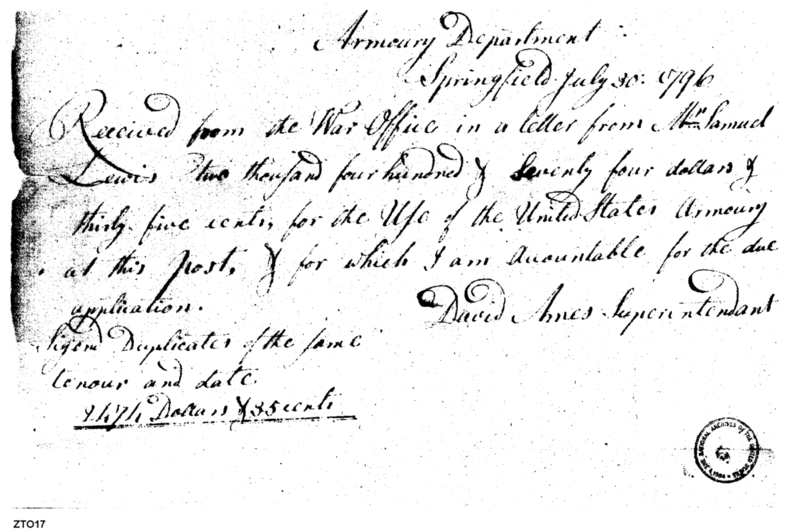 Armoury Department
Springfield July 30. 1796
Received from the War Office in a letter from Mr. Samuel
Lewis two thousand four hundred & Seventy four dollars &
thirty five cents, for the Use of the United States Armoury
at this post, & for which I am Accountable for the due
application.
David Ames Superintendant
Signd Duplicates of the same
tenour and date.
2474 Dollars & 35 cents
ZTO17